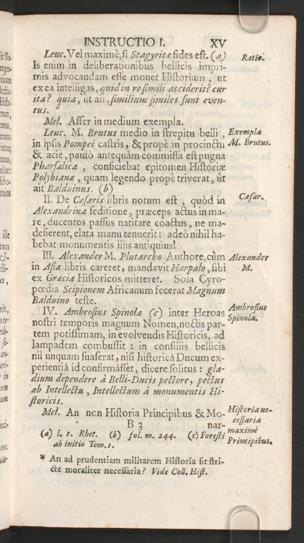 INSTRUCTIO I. XV
Leuc. Vel maximè, si Stagyritæ fides est. (a) Ratio.
Is enim in deliberationibus bellicis impri-
mis advocandam esse monet Historiam, ut
ex ea intelligas, quid in re simili acciderit? cur
ita? quia, ut ait, similium similes sunt even-
tus.
Mel. Affer in medium exempla.
Leuc. M. Brutus medio in strepitu belli, Exempla
in ipsis Pompei castris, & propè in procinctu M. Brutus.
& acie, paulò antequàm commissa est pugna
Pharsalica, conficiebat epitomen Historiæ
Polybianæ, quam legendo propè triverat, ut
ait Balduinus. (b)
II. De Cæsaris libris notum est, quòd in Cæsar.
Alexandrina seditione, præceps actus in ma-
re, ducentos passus natitare coactus, ne ma-
defierent, elata manu tenuerit: adeò nihil ha-
bebat monumentis illis antiquius!
III. Alexander M. Plutarcho Authore, cùm Alexander
in Asia libris careret, mandavit Harpalo, sibi M.
ex Græcia Historicos mitteret. Sola Cyro-
pædia Scipionem Africanum fecerat Magnum
Balduino teste.
IV. Ambrosius Spinola (c) inter Heroas Ambrosius
nostri temporis magnum Nomen, noctis par- Spinola.
tem potissimam, in evolvendis Historicis, ad
lampadem combussit: in consiliis bellicis
nil unquam suaserat, nisi historicâ Ducum exper-
ientiâ id confirmâsset, dicere solitus: gla-
dium dependere à Belli-Ducis pectore, pectus
ab Intellectu, Intellectum à monumentis Hi-
storicis.
Mel. An non Historia Principibus & Mo- Historia ne-
B 3 nar- cessaria
(a) l. 1. Rhet. (b) fol. m. 244. (c) Foresti maximè
ab initio Tom. 1. Principibus.
* An ad prudentiam militarem Historia sit stri-
cte moraliter necessaria? Vide Coll. Hist.